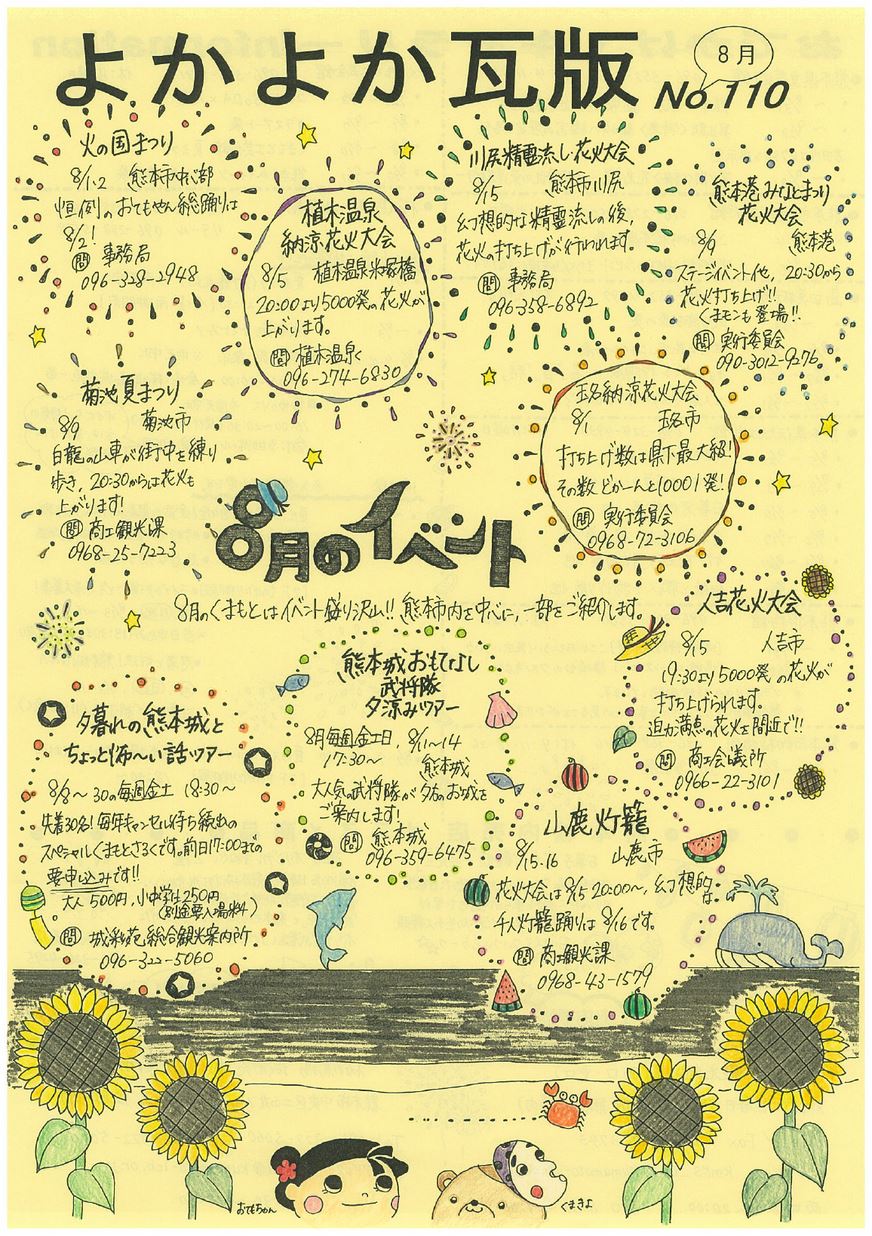 よかよか瓦版
8月
No.110
火の国まつり
8/1.2 熊本市中心部
恒例のおてもやん総踊りは
8/2!
問 事務局
096-328-2948
植木温泉
納涼花火大会
8/5 植木温泉米塚橋
20:00より5000発の花火が
上がります。
問 植木温泉く
096-274-6830
川尻精霊流し・花火大会
8/15 熊本市川尻
幻想的な精霊流しの後,
花火の打ち上げが行われます。
問 事務局
096-358-6892
熊本港みなとまつり
花火大会
8/9 熊本港
ステージイベント他, 20:30から
花火打ち上げ!!
くまモンも登場!!
問 実行委員会
090-3012-9276
菊池夏まつり
8/9 菊池市
白龍の山車が街中を練り
歩き, 20:30からは花火も
上がります!
問 商工観光課
0968-25-7223
玉名納涼花火大会
8/1 玉名市
打ち上げ数は県下最大級!
その数どかーんと10001発!
問 実行委員会
0968-72-3106
8月のイベント
8月のくまもとはイベント盛り沢山!! 熊本市内を中心に, 一部をご紹介します。
人吉花火大会
8/15 人吉市
19:30より5000発の花火が
打ち上げられます。
迫力満点の花火を間近で!!
問 商工会議所
0966-22-3101
熊本城おもてなし
武将隊
夕涼みツアー
8月毎週金土日, 8/11~14
17:30~ 熊本城
大人気の武将隊が夕方のお城を
ご案内します!
問 熊本城
096-359-6475
夕暮れの熊本城と
ちょっと怖~い話ツアー
8/8~30の毎週金土 18:30~
先着30名! 毎年キャンセル待ち続出の
スペシャルくまもとさるくです。前日17:00までの
要申込みです!!
大人500円, 小中学生250円
(別途要入場料)
問 城彩苑総合観光案内所
096-322-5060
山鹿灯籠
8/15.16 山鹿市
花火大会は8/15 20:00~, 幻想的な
千人灯籠踊りは8/16です。
問 商工観光課
0968-43-1579
おてもちゃん
くまきよ